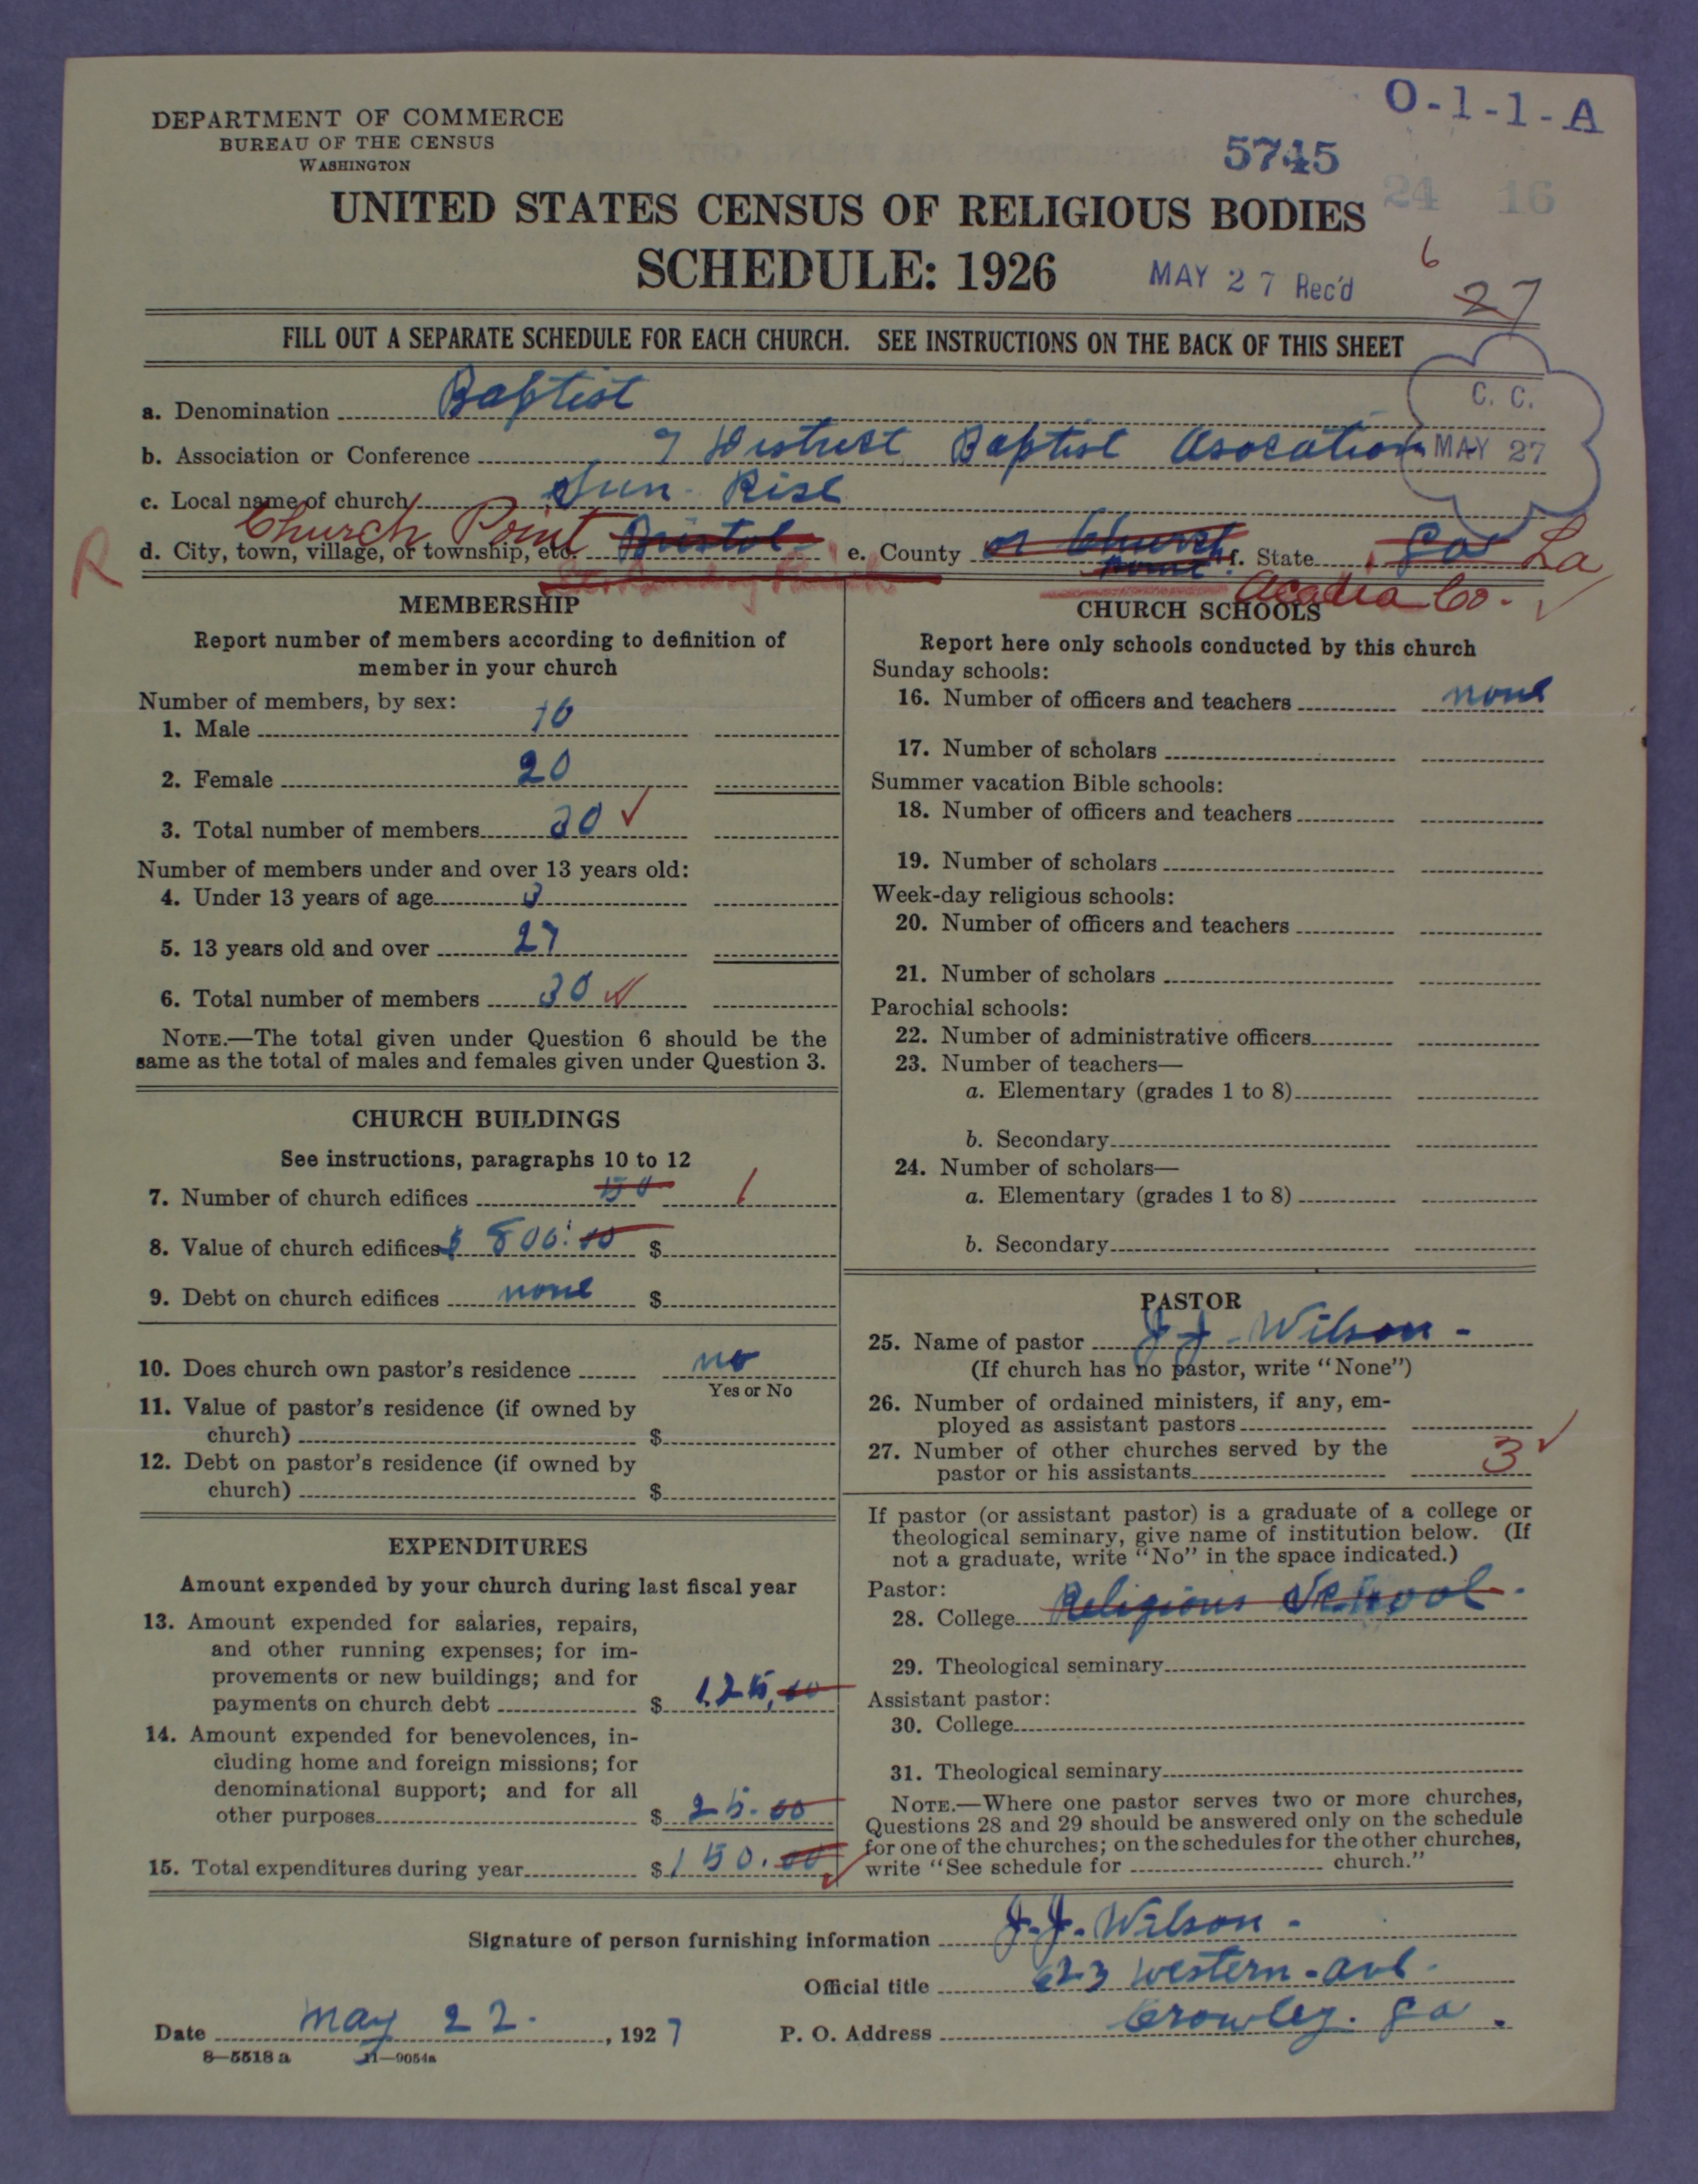 O-1-1-A
DEPARTMENT OF COMMERCE
BUREAU OF THE CENSUS
WASHINGTON
5745
24 16
UNITED STATES CENSUS OF RELIGIOUS BODIES
SCHEDULE: 1926
MAY 27 Rec'd
6
27
FILL OUT A SEPARATE SCHEDULE FOR EACH CHURCH. SEE INSTRUCTIONS ON THE BACK OF THIS SHEET
C. C.
MAY 27
a. Denomination Baptist
b. Association or Conference 7 District Baptist Asocation
c. Local name of church Sun Rise
R
d. City, town, village, or township, etc. Church Point Bristol e. County or Church Point f. State La La
Acadia Co.
MEMBERSHIP
Report number of members according to definition of
member in your church
Number of members, by sex:
1. Male 10
2. Female 20
3. Total number of members 30 ✓
Number of members under and over 13 years old:
4. Under 13 years of age 3
5. 13 years old and over 27
6. Total number of members 30 ✓
NOTE.—The total given under Question 6 should be the
same as the total of males and females given under Question 3.
CHURCH BUILDINGS
See instructions, paragraphs 10 to 12
7. Number of church edifices 50 1
8. Value of church edifices $ 800.00 $
9. Debt on church edifices none $
10. Does church own pastor's residence no
Yes or No
11. Value of pastor's residence (if owned by
church) $
12. Debt on pastor's residence (if owned by
church) $
EXPENDITURES
Amount expended by your church during last fiscal year
13. Amount expended for salaries, repairs,
and other running expenses; for im-
provements or new buildings; and for
payments on church debt $ 125.00
14. Amount expended for benevolences, in-
cluding home and foreign missions; for
denominational support; and for all
other purposes $ 25.00
15. Total expenditures during year $ 150.00 ✓
CHURCH SCHOOLS
Report here only schools conducted by this church
Sunday schools:
16. Number of officers and teachers none
17. Number of scholars
Summer vacation Bible schools:
18. Number of officers and teachers
19. Number of scholars
Week-day religious schools:
20. Number of officers and teachers
21. Number of scholars
Parochial schools:
22. Number of administrative officers
23. Number of teachers—
a. Elementary (grades 1 to 8)
b. Secondary
24. Number of scholars—
a. Elementary (grades 1 to 8)
b. Secondary
PASTOR
25. Name of pastor J J. Wilson -
(If church has no pastor, write "None")
26. Number of ordained ministers, if any, em-
ployed as assistant pastors
27. Number of other churches served by the
pastor or his assistants 3 ✓
If pastor (or assistant pastor) is a graduate of a college or
theological seminary, give name of institution below. (If
not a graduate, write "No" in the space indicated.)
Pastor:
28. College Religious School.
29. Theological seminary
Assistant pastor:
30. College
31. Theological seminary
NOTE.—Where one pastor serves two or more churches,
Questions 28 and 29 should be answered only on the schedule
for one of the churches; on the schedules for the other churches,
write "See schedule for church."
Signature of person furnishing information J. J. Wilson -
Official title 623 western - ave.
Date May 22. , 1927 P. O. Address Crowley. La.
8—5518 a 11—9054a